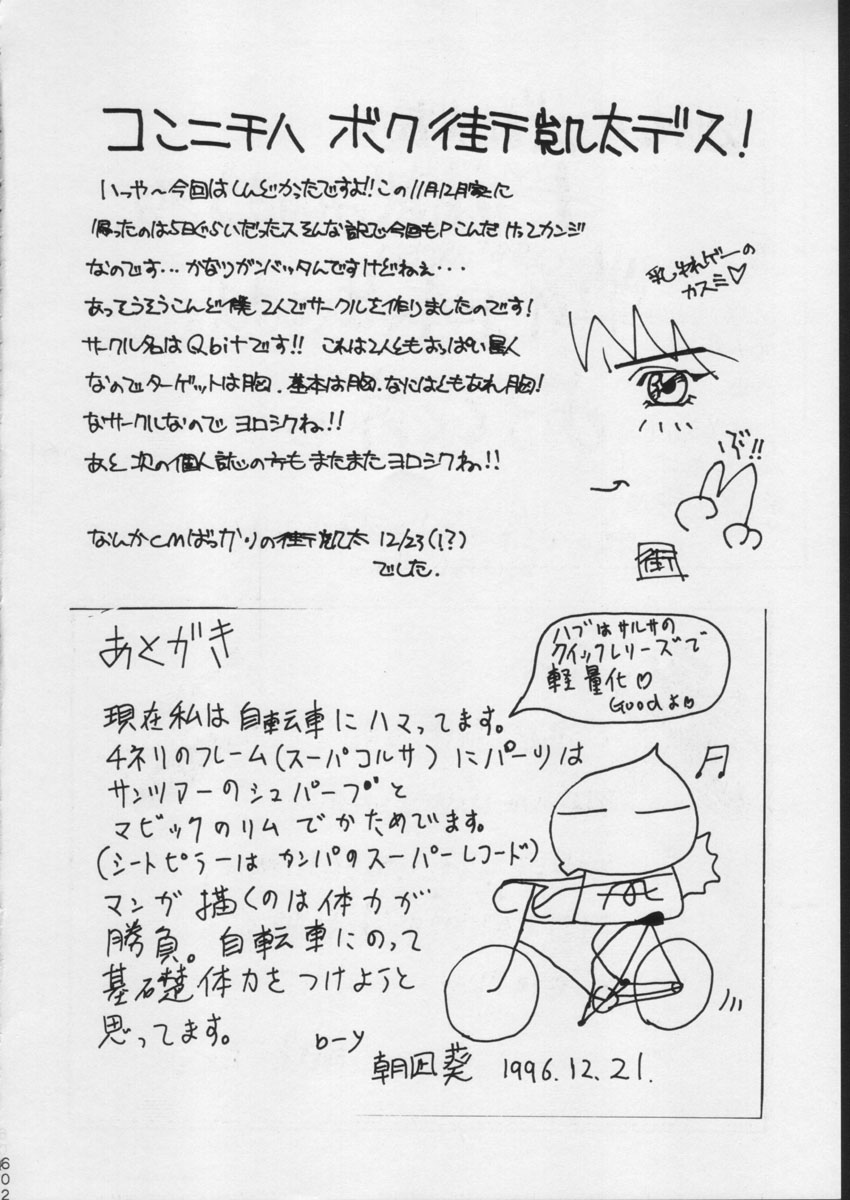 コンニチハ ボク街亍凱太デス!
いっや〜今回はしんどかったですよ!!この11月12月家に
帰ったのは5日ぐらいだったスそんな訳で今回もPこんだけってカンジ
なのです…かなりガンバッタんですけどねぇ・・・
あってそうそうこんど僕2人でサークルを作りましたのです!
サークル名はQbitです!! これは2人ともおっぱい星人
なのでターゲットは胸.基本は胸.なにはともあれ胸!
なサークルなのでヨロシクね!!
あと次の個人誌の方もまたまたヨロシクねっ!!
なんかCMばっかりの街亍凱太 12/23(!?)
でした.
乳ゆれゲーの
カスミ♡
ぷ!!
街亍
あとがき
ハブはサルサの
クイックレリーズで
軽量化♡
Goodよ♡
現在私は自転車にハマってます。
チネリのフレーム(スーパコルサ)にパーツは
サンツアーのシュパーブと
マビックのリムでかためてます。
(シートピラーはカンパのスーパーレコード)
マンガ描くのは体力が
勝負。自転車にのって
基礎体力をつけようと
思ってます。
b-y
朝凪葵 1996.12.21.
602